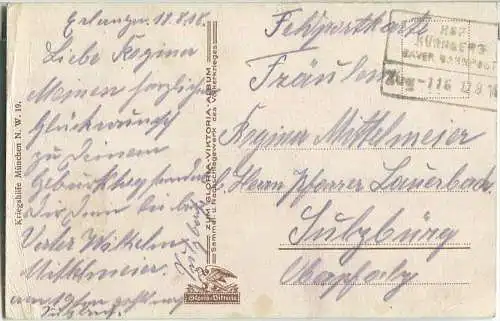 Erlangen 18.8.16.
Liebe Regina
Meinen herzlichen
Glückwunsch
zu Deinem
Geburtstag sendet
Dir Dein lieber
Vetter Wilhelm
Mittelmeier.
Sulzbürg
Kriegshilfe München N. W. 19.
ZUM GLORIA-VIKTORIA-ALBUM
Sammel- u. Nachschlagewerk des Völkerkrieges
Gloria-Viktoria
Feldpostkarte
Fräulein
Regina Mittelmeier
Herrn Pfarrer Lauerbach
Sulzbürg
Oberpfalz
NÜRNBERG
BAYER BAHNPOST
Zug-116